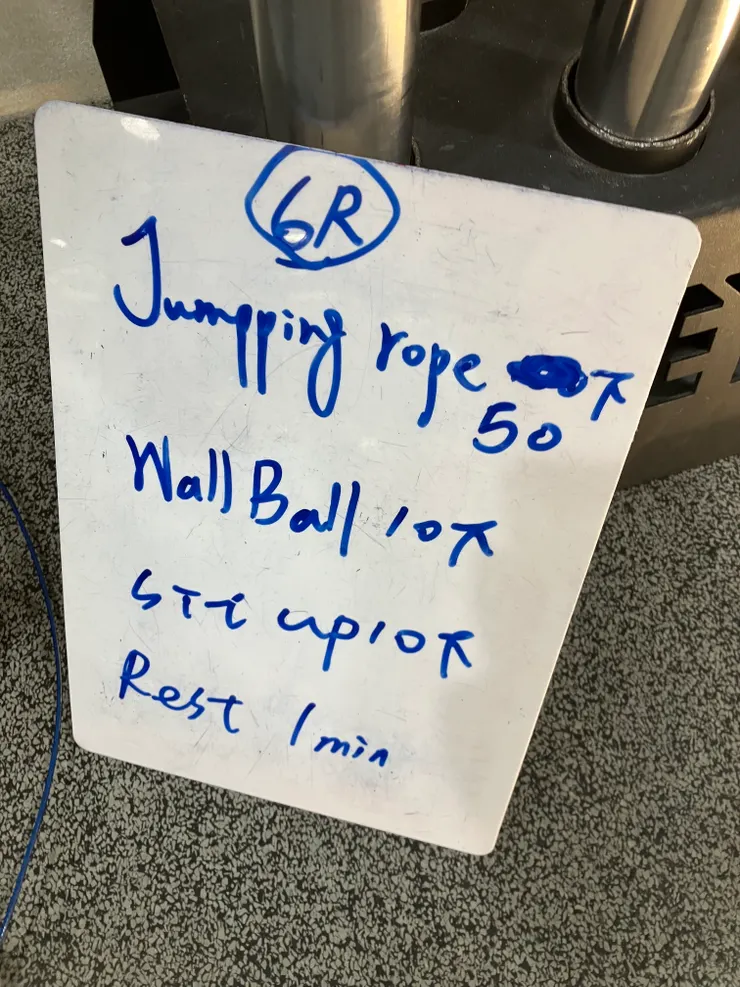 6R
Jumpping rope 下
50
Wall Ball 10下
sit up 10下
Rest 1min